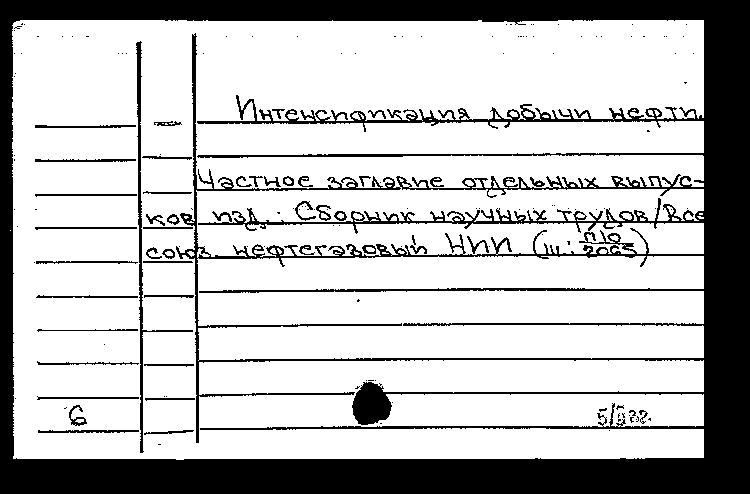 Интенсификация добычи нефти.
Частное заглавие отдельных выпус-
ков изд.: Сборник научных трудов/Все
союз. нефтегазовый НИИ (Ш: П10/2065)
6